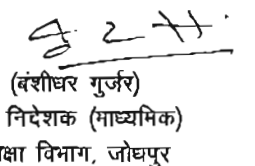 (बंशीधर गुर्जर)
निदेशक (माध्यमिक)
क्षा विभाग, जोधपुर